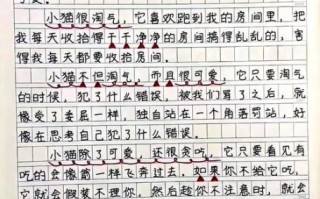 小猫很淘气，它喜欢跑到我的房间里，把
我每天收拾得干干净净的房间搞得乱乱的，害
得我每天都要收拾房间。
小猫不但淘气，而且很可爱，它只要淘气
的时候，犯了什么错误，被我们骂了之后，就
像受了委屈一样，独自站在一个角落罚站，好
像在思考自己犯了什么错误。
小猫除了可爱，还很贪吃，它只要看见有
吃的会像箭一样飞奔过去。如果你不给它吃，
它就会假装不理你，然后趁你不注意时，就会